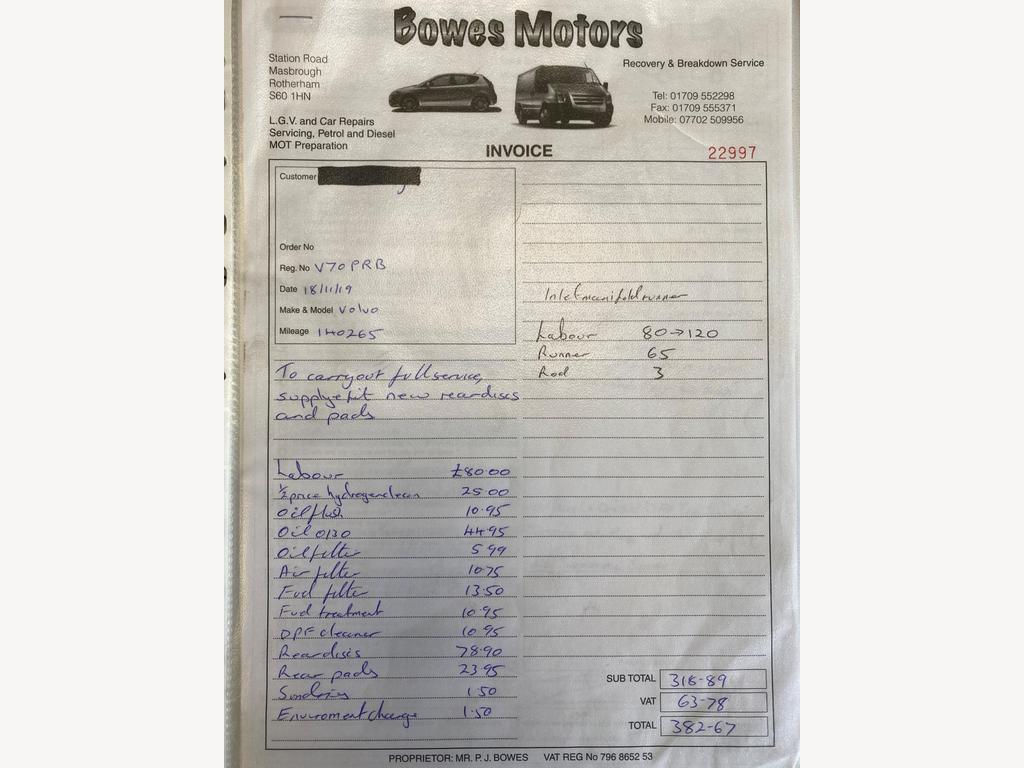 Bowes Motors
Station Road
Masbrough
Rotherham
S60 1HN
L.G.V. and Car Repairs
Servicing, Petrol and Diesel
MOT Preparation
Recovery & Breakdown Service
Tel: 01709 552298
Fax: 01709 555371
Mobile: 07702 509956
INVOICE
22997
Customer
Order No
Reg. No V70 PRB
Date 18/11/19
Make & Model Volvo
Mileage 140265
To carryout full service,
supply + fit new rear discs
and pads
Labour £80.00
½ price hydrogen clean 25.00
Oil flush 10.95
Oil 0/30 44.95
Oil filter 5.99
Air filter 10.75
Fuel filter 13.50
Fuel treatment 10.95
DPF cleaner 10.95
Rear discs 78.90
Rear pads 23.95
Sundries 1.50
Enviroment charge 1.50
Inlet manifold runner
Labour 80→120
Runner 65
Rod 3
SUB TOTAL 318-89
VAT 63-78
TOTAL 382-67
PROPRIETOR: MR. P. J. BOWES VAT REG No 796 8652 53